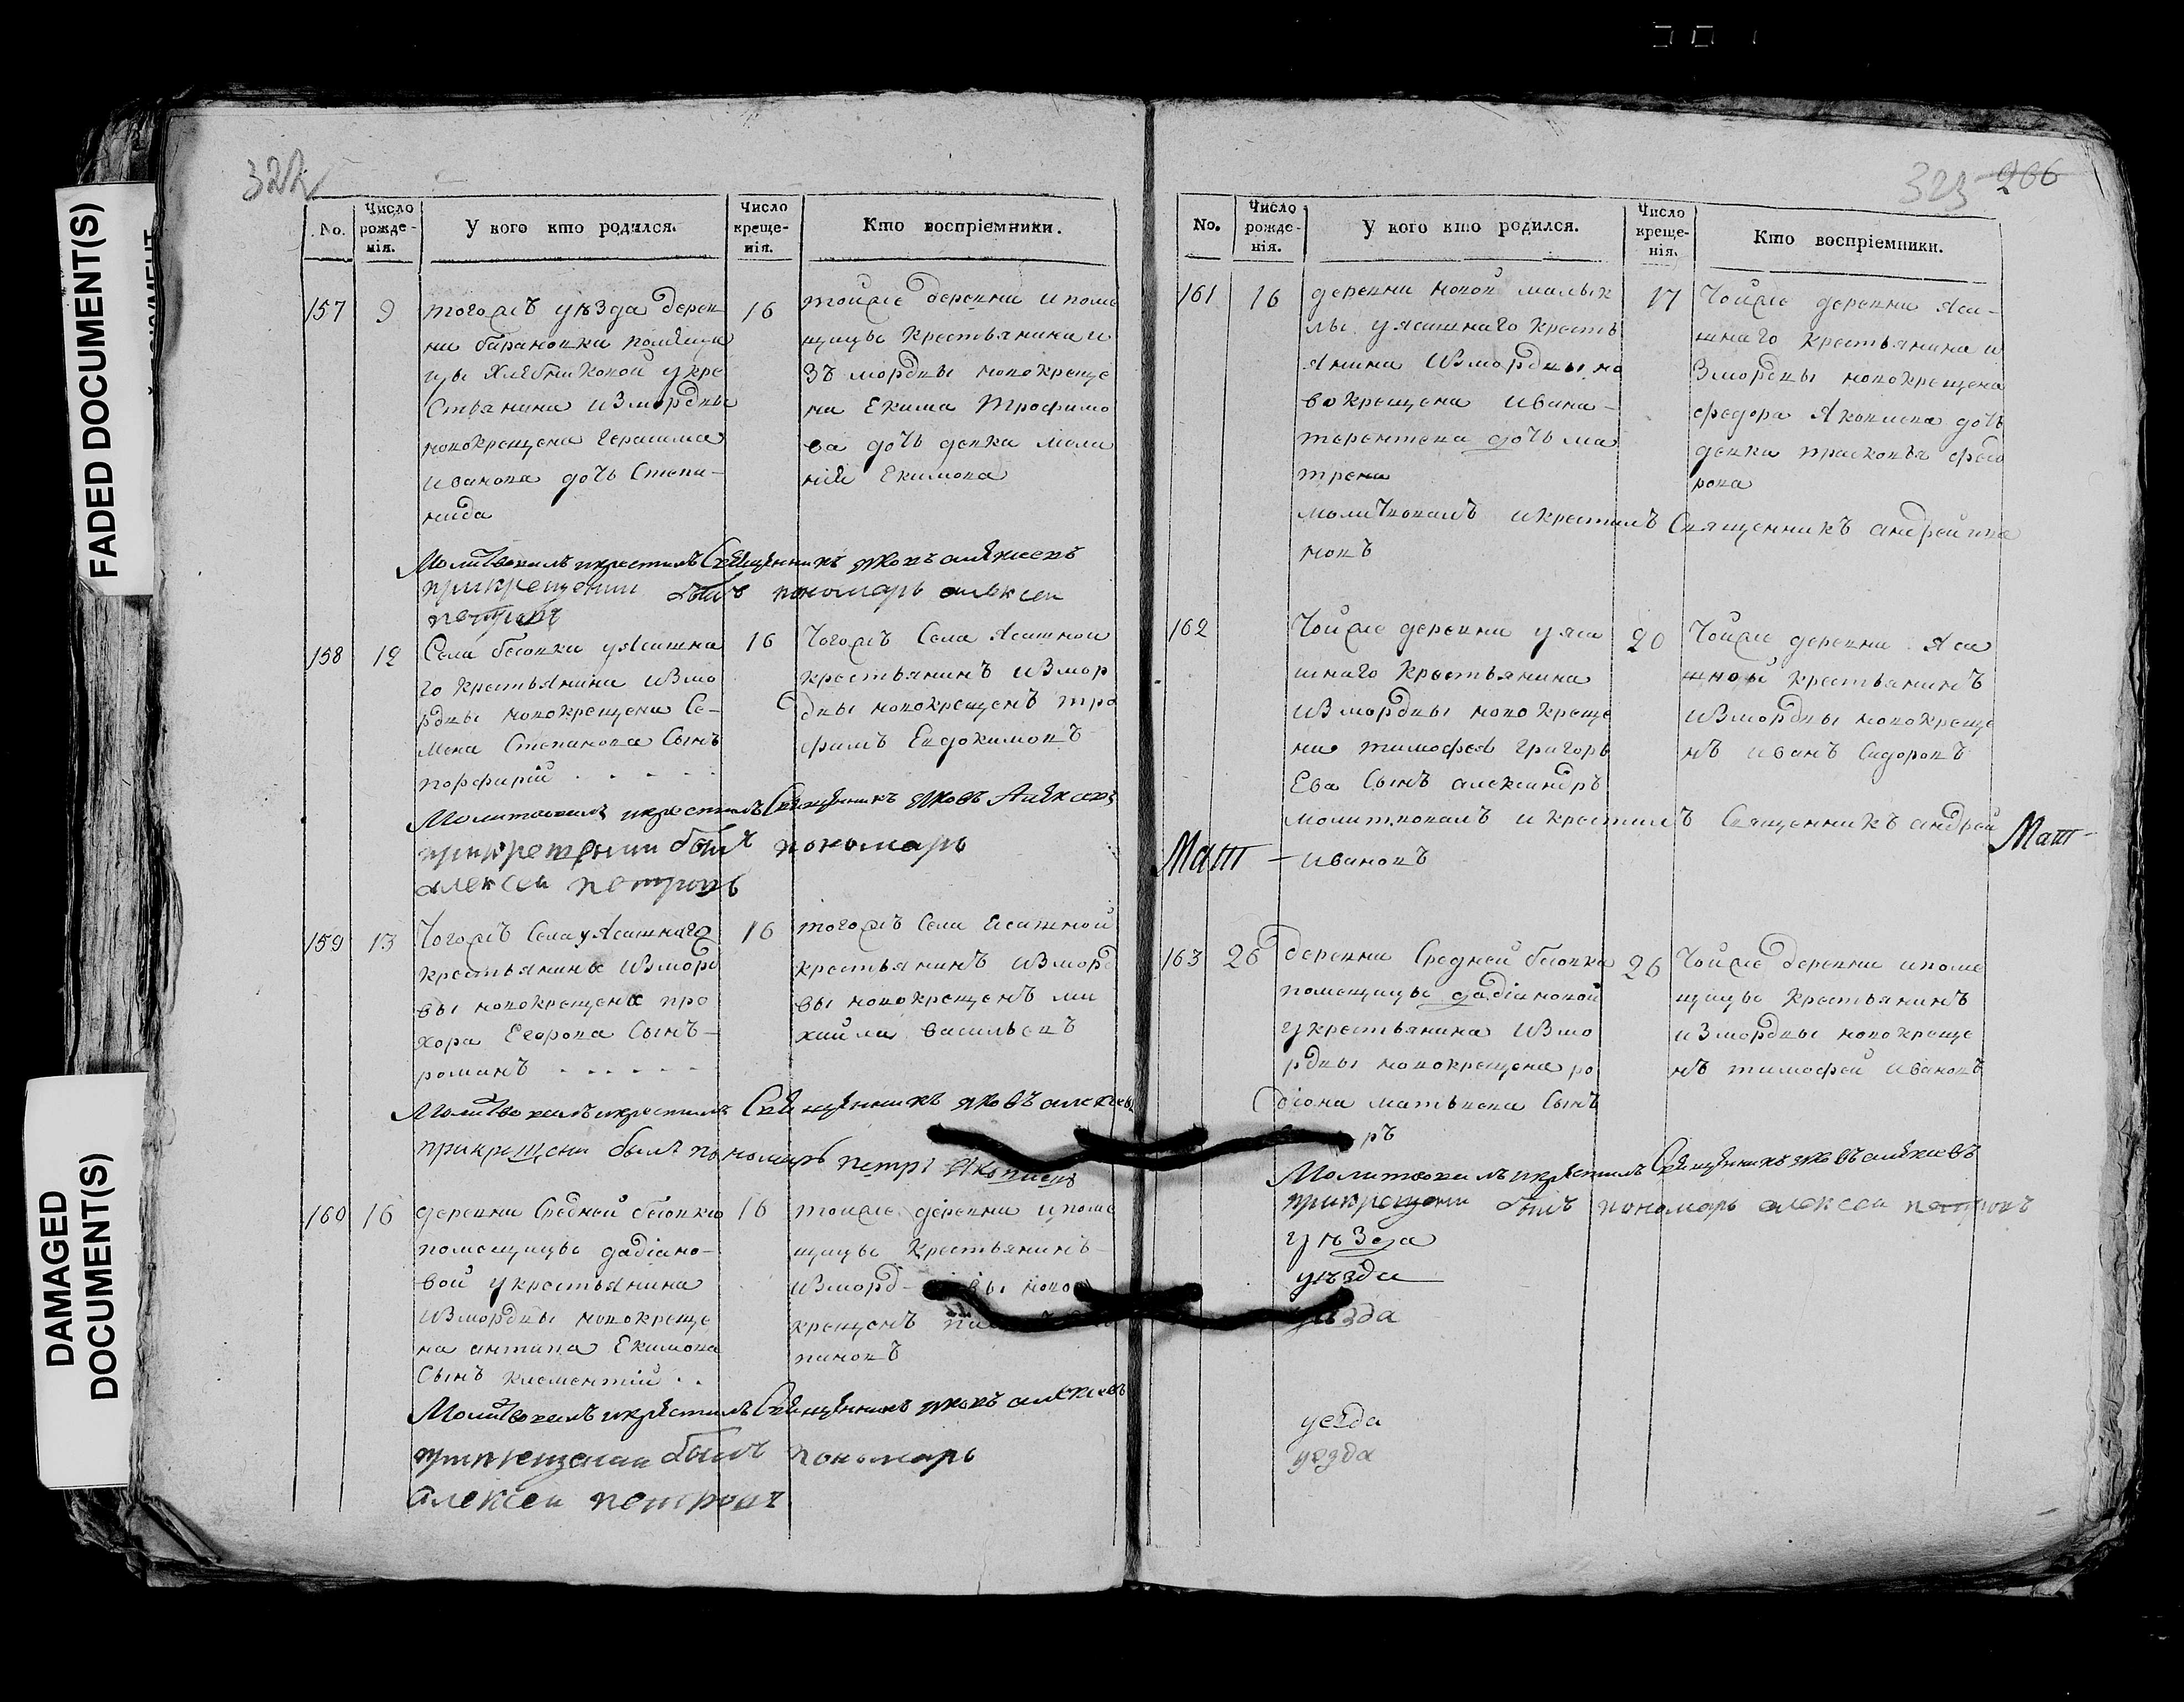 FADED DOCUMENT(S)
DAMAGED
DOCUMENT(S)
322
No.
Число
рожде-
нія.
У кого кто родился.
Число
креще-
нія.
Кто воспріемники.
157
9
тогожъ уѣзда дерев
ни барановки помѣщи
цы Хлебниковой укре
стьянина измордвы
новокрещена герасима
иванова дочь Степа-
нида
16
тойже деревни ипоме
щицы крестьянина и
зъ мордвы новокреще
на Екима Трофимо
ва дочь девка мела
нія Екимова
Молитвовалъ икрестилъ Священникъ яковъ алексеевъ
прикрещении былъ пономарь алексеи
петровъ
158
12
Села бесовки уясашна
го крестьянина измо
рдвы новокрещена Се-
мена Степанова Сынъ
порфирій
16
тогожъ Села Ясашнои
крестьянинъ измор
двы новокрещенъ тро
фимъ Евдокимовъ
Молитвовалъ икрестилъ Священникъ яковъ Алексеевъ
прикрещении былъ пономарь
алексеи петровъ
159
13
тогожъ Села уЯсашнаго
крестьянина изморд
вы новокрещена про
хора Егорова Сынъ-
романъ
16
тогожъ Села Ясашной
крестьянинъ изморд
вы новокрещенъ ми
хайла васильевъ
Молитвовалъ икрестилъ Священникъ яковъ алексеевъ
прикрещени былъ пономарь петръ яковлевъ
160
16
деревни Средней бесовки
помещицы дадіано-
вой укрестьянина
измордвы новокреще
на антипа Екимова
Сынъ климентій
16
тойже деревни ипоме
щицы крестьянинъ
изморд- вы ново
крещенъ
Молитвовалъ икрестилъ Священникъ яковъ алексеевъ
прикрещении былъ пономарь
алексеи петровъ
323 206
No.
Число
рожде-
нія.
У кого кто родился.
Число
креще-
нія.
Кто воспріемники.
161
16
деревни новой малык
лы уясашнаго кресть
янина измордвы но
вокрещена ивана
терентева дочь ма
трена
17
тойже деревни яса-
шнаго крестьянина и
змордвы новокрещена
федора Яковлева дочь
девка прасковья федо
рова
молитвовалъ икрестилъ Священникъ андрей ива
новъ
162
тойже деревни уяса
шнаго крестьянина
измордвы новокреще
на тимофея григорь
Ева Сынъ александръ
20
тойже деревни Яса
шной крестьянинъ
измордвы новокреще
нъ иванъ Сидоровъ
молитвовалъ икрестилъ Священникъ андрей
Мат - ивановъ Мат
163
26
деревни Средней бесовки
помещицы дадіановой
укрестьянина измо
рдвы новокрещена ро
діона матвеева Сынъ
ръ
26
тойже деревни ипоме
щицы крестьянинъ
измордвы новокреще
нъ тимофей ивановъ
Молитвовалъ икрестилъ Священникъ яковъ алексеевъ
прикрещени былъ пономарь алексеи петровъ
уѣзда
уѣзда
уѣзда
уезда
уезда